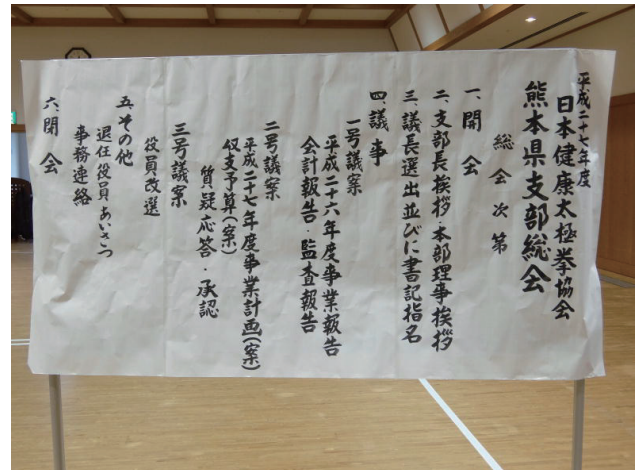 平成二十七年度
日本健康太極拳協会
熊本県支部総会
総会次第
一、開会
二、支部長挨拶・本部理事挨拶
三、議長選出並びに書記指名
四、議事
一号議案
平成二十六年度事業報告
会計報告・監査報告
二号議案
平成二十七年度事業計画(案)
収支予算(案)
質疑応答・承認
三号議案
役員改選
五、その他
退任役員あいさつ
事務連絡
六、閉会